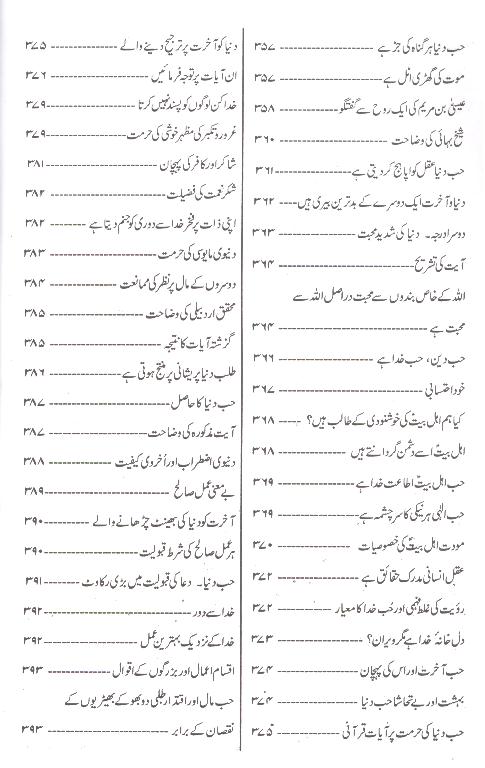 حب دنیا ہر گناہ کی جڑ ہے ---------------- ۳۵۷
موت کی گھڑی اٹل ہے ---------------- ۳۵۷
عیسیٰ بن مریم کی ایک روح سے گفتگو ---------------- ۳۵۸
شیخ بہائی کی وضاحت ---------------- ۳۶۰
حب دنیا عقل کو اپاہج کر دیتی ہے ---------------- ۳۶۱
دنیا و آخرت ایک دوسرے کے بدترین بیری ہیں ---- ۳۶۲
دوسرا درجہ۔ دنیا کی شدید محبت ---------------- ۳۶۳
آیت کی تشریح ---------------- ۳۶۴
اللہ کے خاص بندوں سے محبت دراصل اللہ سے
محبت ہے ---------------- ۳۶۴
حب دین، حب خدا ہے ---------------- ۳۶۶
خود احتسابی ---------------- ۳۶۷
کیا ہم اہل بیتؑ کی خوشنودی کے طالب ہیں؟ ---- ۳۶۸
اہل بیتؑ اسے دشمن گردانتے ہیں ---------------- ۳۶۸
حب اہل بیتؑ اطاعت خدا ہے ---------------- ۳۶۹
حب الٰہی ہر نیکی کا سرچشمہ ہے ---------------- ۳۶۹
مودت اہل بیتؑ کی خصوصیات ---------------- ۳۷۰
عقل انسانی مدرک حقائق ہے ---------------- ۳۷۲
رؤیت کی غلط فہمی اور حُب خدا کا معیار ---------- ۳۷۲
دل خانۂ خدا ہے مگر ویران؟ ---------------- ۳۷۳
حب آخرت اور اس کی پہچان ---------------- ۳۷۴
بہشت اور بے تحاشا حب دنیا ---------------- ۳۷۴
حب دنیا کی حرمت پر آیات قرآنی ---------------- ۳۷۵
دنیا کو آخرت پر ترجیح دینے والے ---------------- ۳۷۵
ان آیات پر توجہ فرمائیں ---------------- ۳۷۶
خدا کن لوگوں کو پسند نہیں کرتا ---------------- ۳۷۹
غرور و تکبر کی مظہر خوشی کی حرمت ---------------- ۳۷۹
شاکر اور کافر کی پہچان ---------------- ۳۸۱
شکر نعمت کی فضیلت ---------------- ۳۸۲
اپنی ذات پر فخر خدا سے دوری کو جنم دیتا ہے -------- ۳۸۲
دنیوی مایوسی کی حرمت ---------------- ۳۸۳
دوسروں کے مال پر نظر کی ممانعت ---------------- ۳۸۴
محقق اردبیلی کی وضاحت ---------------- ۳۸۵
گزشتہ آیات کا نتیجہ ---------------- ۳۸۵
طلب دنیا پریشانی پر منتج ہوتی ہے ---------------- ۳۸۶
حب دنیا کا حاصل ---------------- ۳۸۷
آیت مذکورہ کی وضاحت ---------------- ۳۸۷
دنیوی اضطراب اور اُخروی کیفیت ---------------- ۳۸۸
بے معنی عمل صالح ---------------- ۳۸۹
آخرت کو دنیا کی بھینٹ چڑھانے والے ---------- ۳۹۰
ہر عمل صالح کی شرط قبولیت ---------------- ۳۹۰
حب دنیا۔ دعا کی قبولیت میں بڑی رکاوٹ -------- ۳۹۱
خدا سے دور ---------------- ۳۹۲
خدا کے نزدیک بہترین عمل ---------------- ۳۹۲
اقسام اعمال اور بزرگوں کے اقوال ---------------- ۳۹۳
حب مال اور اقتدار طلبی دو بھوکے بھیڑیوں کے
نقصان کے برابر ---------------- ۳۹۳